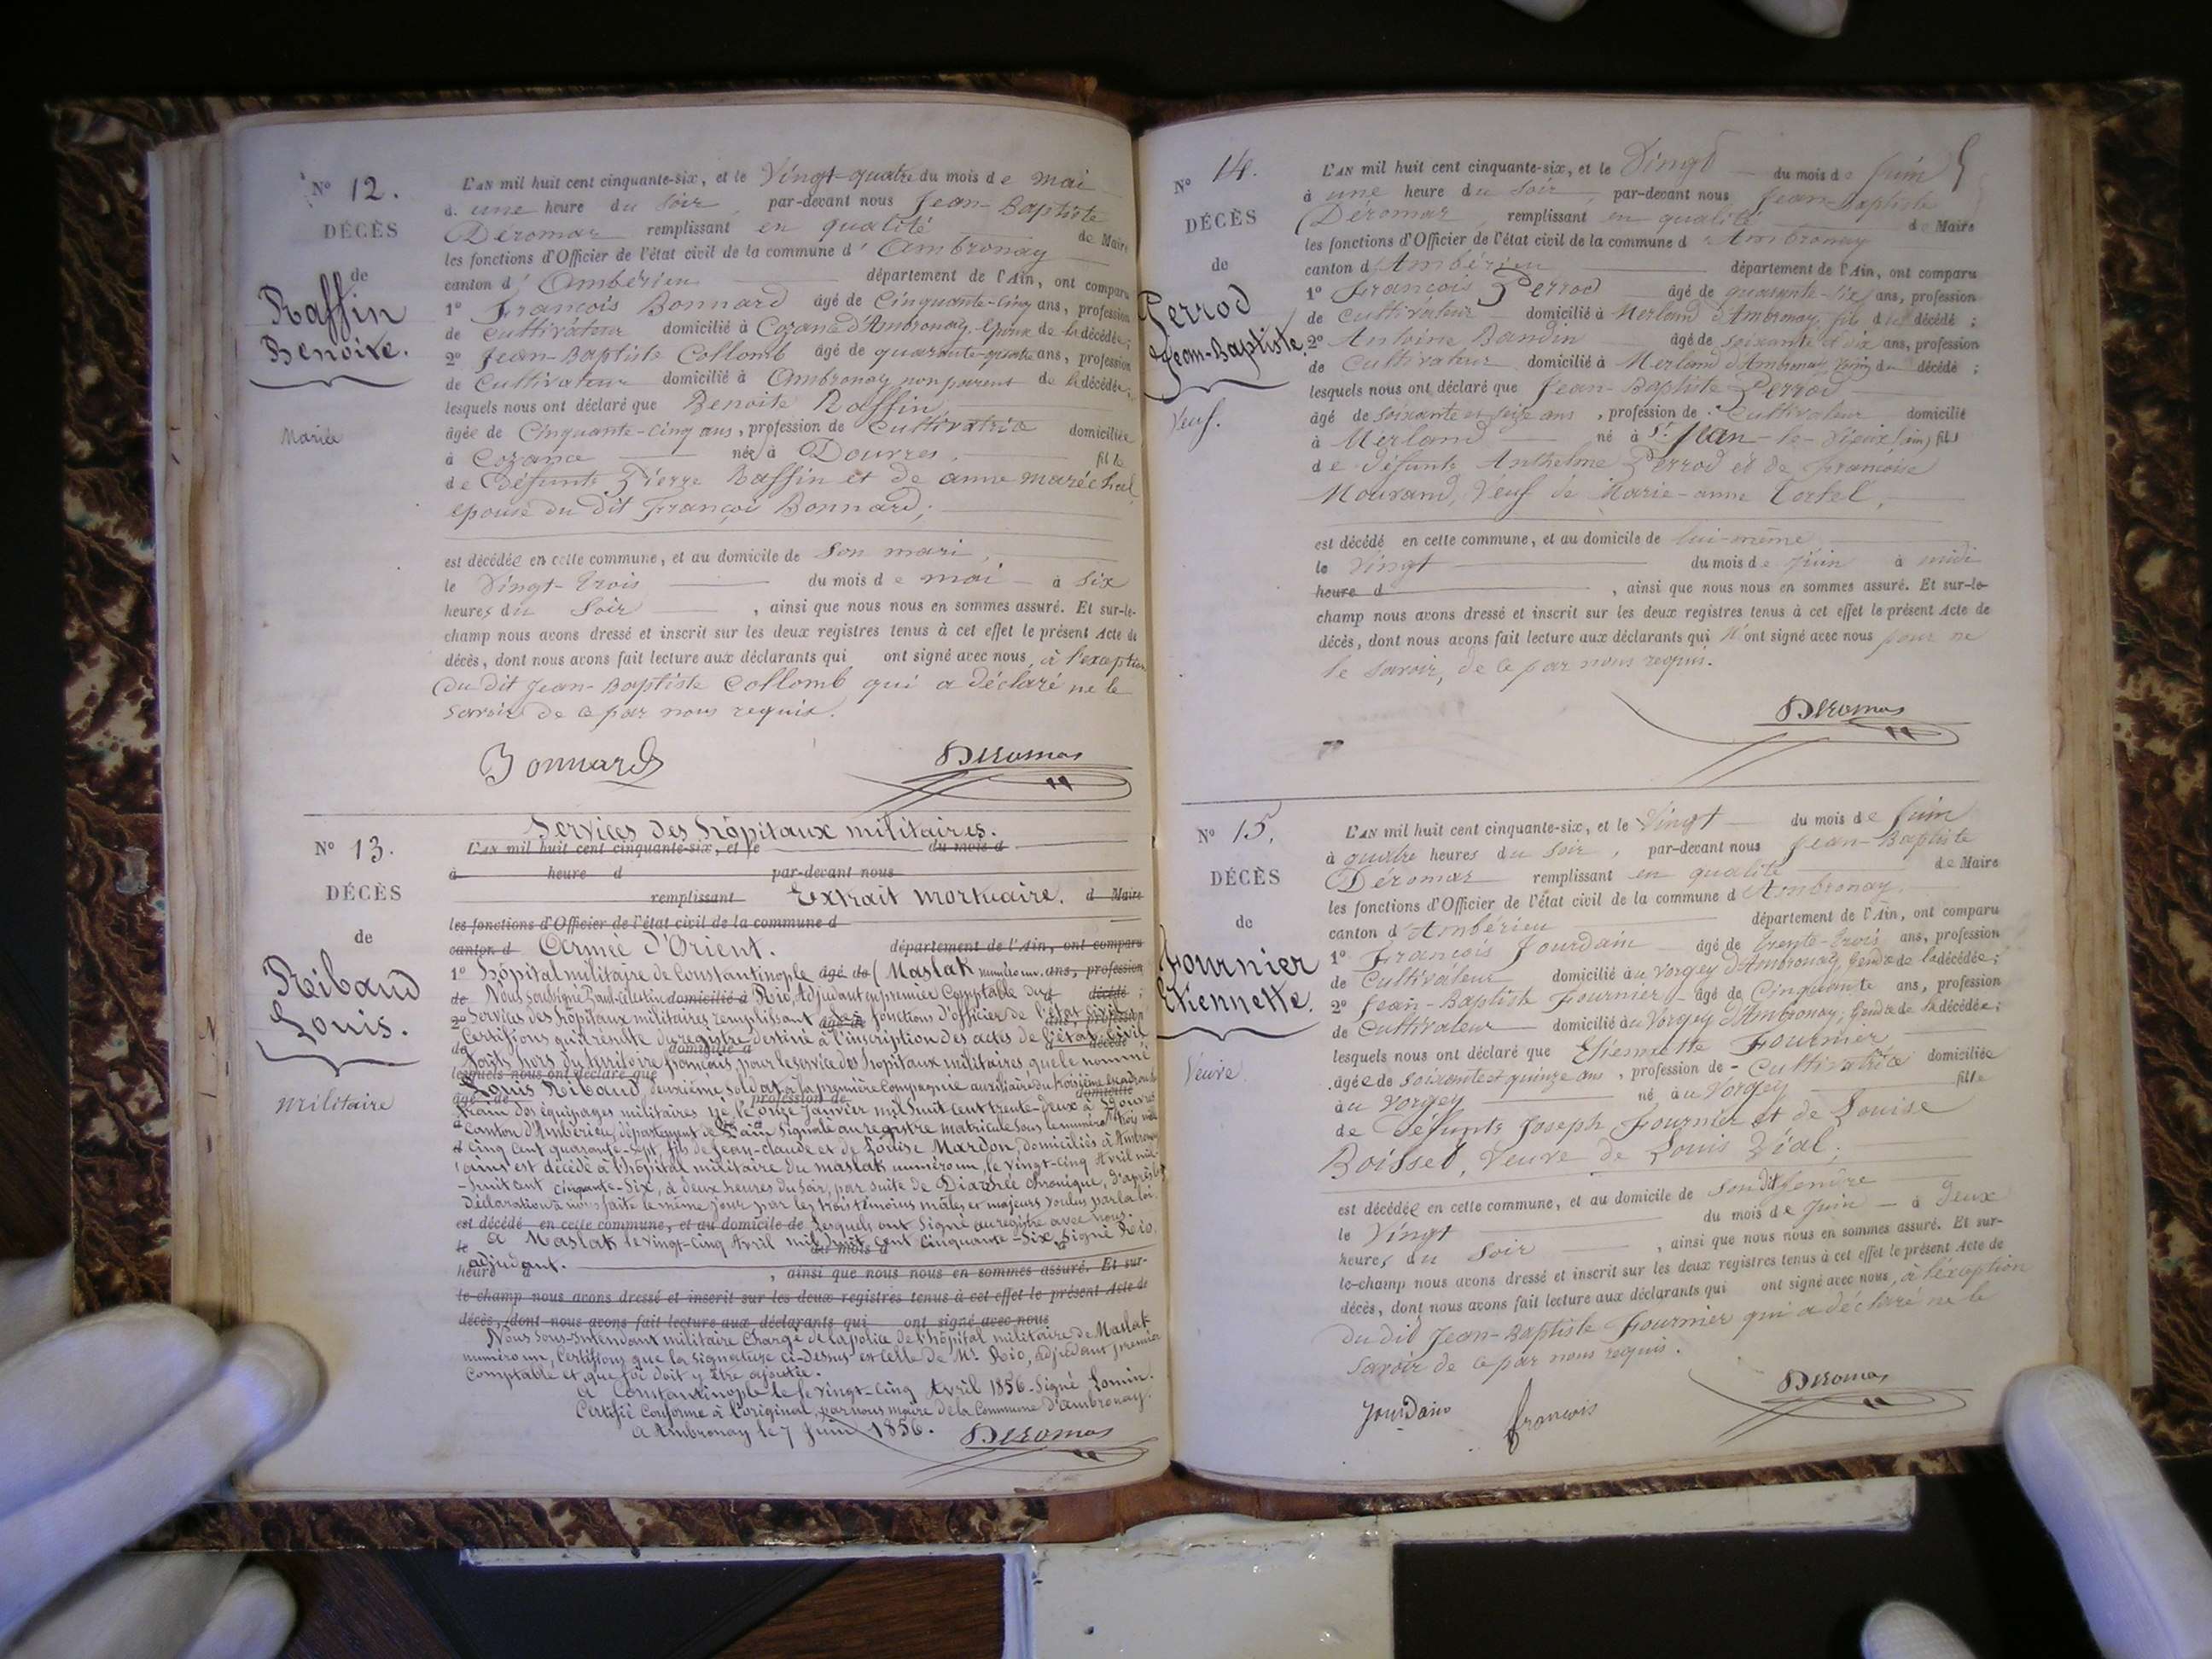 N° 12.
DÉCÈS
de
Raffin
Benoite.
Mariée
L'AN mil huit cent cinquante-six, et le Vingt-quatre du mois de mai
à une heure du soir, par-devant nous Jean-Baptiste
Déromas remplissant en qualité de Maire
les fonctions d'Officier de l'état civil de la commune d'Ambronay
canton d'Ambérieu département de l'Ain, ont comparu
1° François Bonnard âgé de Cinquante-cinq ans, profession
de cultivateur domicilié à Cozance d'Ambronay, époux de la décédée;
2° Jean-Baptiste Collomb âgé de quarante-quatre ans, profession
de Cultivateur domicilié à Ambronay non parent de la décédée;
lesquels nous ont déclaré que Benoite Raffin
âgée de Cinquante-cinq ans, profession de Cultivatrice domiciliée
à Cozance née à Douvres, fille
de défunts Pierre Raffin et de anne maréchal
epouse du dit François Bonnard;
est décédée en cette commune, et au domicile de son mari,
le Vingt-trois du mois de mai à six
heures du soir, ainsi que nous nous en sommes assuré. Et sur-le-
champ nous avons dressé et inscrit sur les deux registres tenus à cet effet le présent Acte de
décès, dont nous avons fait lecture aux déclarants qui ont signé avec nous, à l'exception
du dit Jean-Baptiste Collomb qui a déclaré ne le
savoir de ce par nous requis.
Bonnard Deromas
N° 13.
DÉCÈS
de
Ribaud
Louis.
militaire
Services des hôpitaux militaires.
L'AN mil huit cent cinquante-six, et le du mois d
à heure d par-devant nous
remplissant Extrait mortuaire. d Maire
les fonctions d'Officier de l'état civil de la commune d
canton d Armée d'Orient. département de l'Ain, ont comparu
1° hôpital militaire de Constantinople âgé de (Maslak numéro un. ans, profession
de Nous soussigné Paul-Célestin domicilié à Rio, Adjudant en premier Comptable du d décédé;
2° Services des hôpitaux militaires remplissant âgé de les fonctions d'officier de l'état civil ans, profession
Certifions qu'il résulte du registre destiné à l'inscription des actes de l'état civil
de domicilié à décédé
faits hors du territoire français, pour le service des hopitaux militaires que le nommé
lesquels nous ont déclaré que
Louis Ribaud, deuxième soldat à la première Compagnie auxiliaire du troisième escadron du
âgé de profession de domicilié
train des équipages militaires né le onze Janvier mil huit cent trente-deux à Douvres
Canton d'Ambérieu, département de l'ain signalé au registre matricule sous le numéro trois mille
cinq cent quarante-sept, fils de Jean-claude et de Louise Mardon, domiciliés à Ambronay
(ain) est décédé à l'hôpital militaire du maslak numéro un, le vingt-cinq Avril mil-
-huit cent cinquante-six, à deux heures du soir, par suite de Diarrhée chronique, d'après la
déclaration à nous faite le même jour par les trois témoins mâles et majeurs voulus par la loi.
est décédé en cette commune, et au domicile de lesquels ont signé au registre avec nous.
le A Maslak le vingt-cinq Avril mil huit cent cinquante-six, signé Rio,
du mois d
adjudant.
heure d , ainsi que nous nous en sommes assuré. Et sur-
le-champ nous avons dressé et inscrit sur les deux registres tenus à cet effet le présent Acte de
décès, dont nous avons fait lecture aux déclarants qui ont signé avec nous
Nous sous-intendant militaire Chargé de la police de l'hôpital militaire de Maslak
numéro un, Certifions que la signature ci-dessus est celle de Mr. Rio, adjudant premier
Comptable et que foi doit y être ajoutée.
A Constantinople le vingt-cinq Avril 1856. Signé
Certifié Conforme à l'original, par nous maire de la Commune d'Ambronay.
A Ambronay le 7 Juin 1856. Deromas
N° 14.
DÉCÈS
de
Perrod
Jean-Baptiste.
Veuf.
L'AN mil huit cent cinquante-six, et le Vingt du mois de Juin
à une heure du soir, par-devant nous Jean-Baptiste
Déromas, remplissant en qualité de Maire
les fonctions d'Officier de l'état civil de la commune d'Ambronay
canton d'Ambérieu département de l'Ain, ont comparu
1° François Perrod âgé de ans, profession
de Cultivateur domicilié à Merland d'Ambronay, fils du décédé;
2° Antoine Bandin âgé de soixante et dix ans, profession
de Cultivateur domicilié à Merland d'Ambronay, voisin du décédé;
lesquels nous ont déclaré que Jean-Baptiste Perrod
âgé de soixante et seize ans, profession de Cultivateur domicilié
à Merland né à St. Jean-le-Vieux (ain) fils
de défunts Anthelme Perrod et de Françoise
Mourand, veuf de Marie-anne Tortel,
est décédé en cette commune, et au domicile de lui-même
le Vingt du mois de Juin à midi
heure d , ainsi que nous nous en sommes assuré. Et sur-le-
champ nous avons dressé et inscrit sur les deux registres tenus à cet effet le présent Acte de
décès, dont nous avons fait lecture aux déclarants qui n'ont signé avec nous pour ne
le savoir, de ce par nous requis.
Deromas
N° 15.
DÉCÈS
de
Fournier
Etiennette.
Veuve
L'AN mil huit cent cinquante-six, et le Vingt du mois de Juin
à quatre heures du soir, par-devant nous Jean-Baptiste
Déromas remplissant en qualité de Maire
les fonctions d'Officier de l'état civil de la commune d'Ambronay
canton d'Ambérieu département de l'Ain, ont comparu
1° François Jourdain âgé de trente-trois ans, profession
de Cultivateur domicilié au Vorgey d'Ambronay, gendre de la décédée;
2° Jean-Baptiste Fournier âgé de Cinquante ans, profession
de Cultivateur domicilié au Vorgey d'Ambronay, gendre de la décédée;
lesquels nous ont déclaré que Etiennette Fournier
âgée de soixante et quinze ans, profession de Cultivatrice domiciliée
au Vorgey né au Vorgey fille
de défunts Joseph Fournier et de Louise
Boisset, veuve de Louis Vial;
est décédée en cette commune, et au domicile de son dit gendre
le Vingt du mois de Juin à deux
heures du soir, ainsi que nous nous en sommes assuré. Et sur-
le-champ nous avons dressé et inscrit sur les deux registres tenus à cet effet le présent Acte de
décès, dont nous avons fait lecture aux déclarants qui ont signé avec nous, à l'exception
du dit Jean-Baptiste Fournier qui a déclaré ne le
savoir de ce par nous requis.
Jourdain françois Deromas